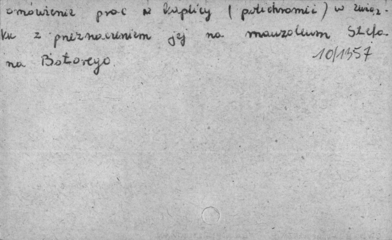 omówienie prac w kaplicy (polichromii) w związ-
ku z przeznaczeniem jej na mauzoleum Stefa-
na Batorego
10/1957